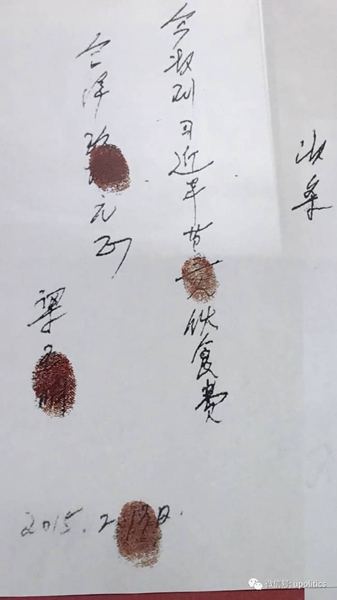 收条
今收到习近平伙食费
合洋元正
梁
2015.2.13日.
微信号: upolitics